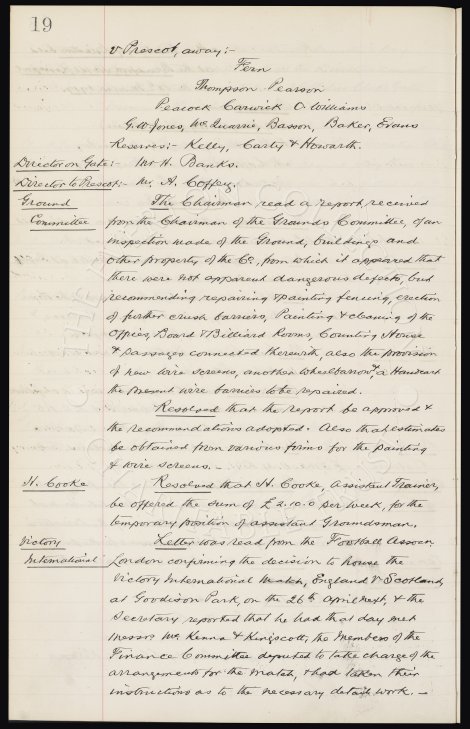 19
v Prescot, away:-
Fern
Thompson Pearson
Peacock Carwick O. Williams
G. W Jones, McQuarrie, Basson, Baker, Evans
Reserves:- Kelly, Carty & Howarth.
Director on Gate:- Mr H. Banks.
Director to Prescot:- Mr. A. Coffey.
Ground The Chairman read a report, received
Committee from the Chairman of the Grounds Committee, of an
inspection made of the Ground, buildings and
other property of the Co, from which it appeared that
there were not apparent dangerous defects, but
recommending repairing & painting fencing, erection
of further crush barriers, Painting & cleaning of the
Offices, Board & Billiard Rooms, Counting House
& passages connected therewith, also the provision
of new wire screens, another wheelbarrow & a Handcart
the present wire barriers to be repaired.
Resolved that the report be approved &
the recommendations adopted. Also that estimates
be obtained from various firms for the painting
& wire screens. -
H. Cooke Resolved that H. Cooke, assistant Trainer,
be offered the sum of £2.10.0 per week, for the
temporary position of assistant Groundsman.
Victory Letter was read from the Football Assocn.
International London confirming the decision to house the
Victory International Match, England V Scotland,
at Goodison Park, on the 26th April next, & the
Secretary reported that he had that day met
Messrs McKenna & Kingscott, the Members of the
Finance Committee deputed to take charge of the
arrangements for the match, & had taken their
instructions as to the necessary detail work. -